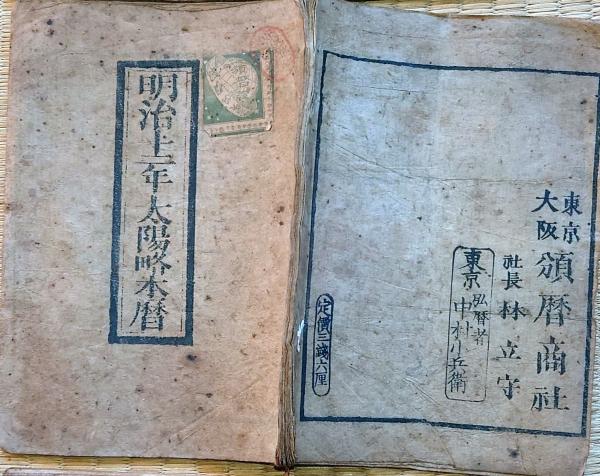 明治十一年太陽略本暦
東京
大阪
頒暦商社
社長 林立守
東京 弘暦者
中村小兵衛
定價三錢六厘